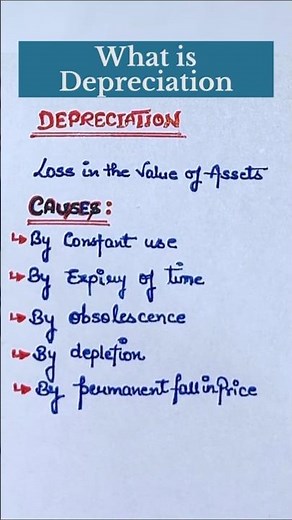 What is
Depreciation
DEPRECIATION
Loss in the Value of Assets
CAUSES:
By Constant use
By Expiry of time
By obsolescence
By depletion
By permanent fall in Price